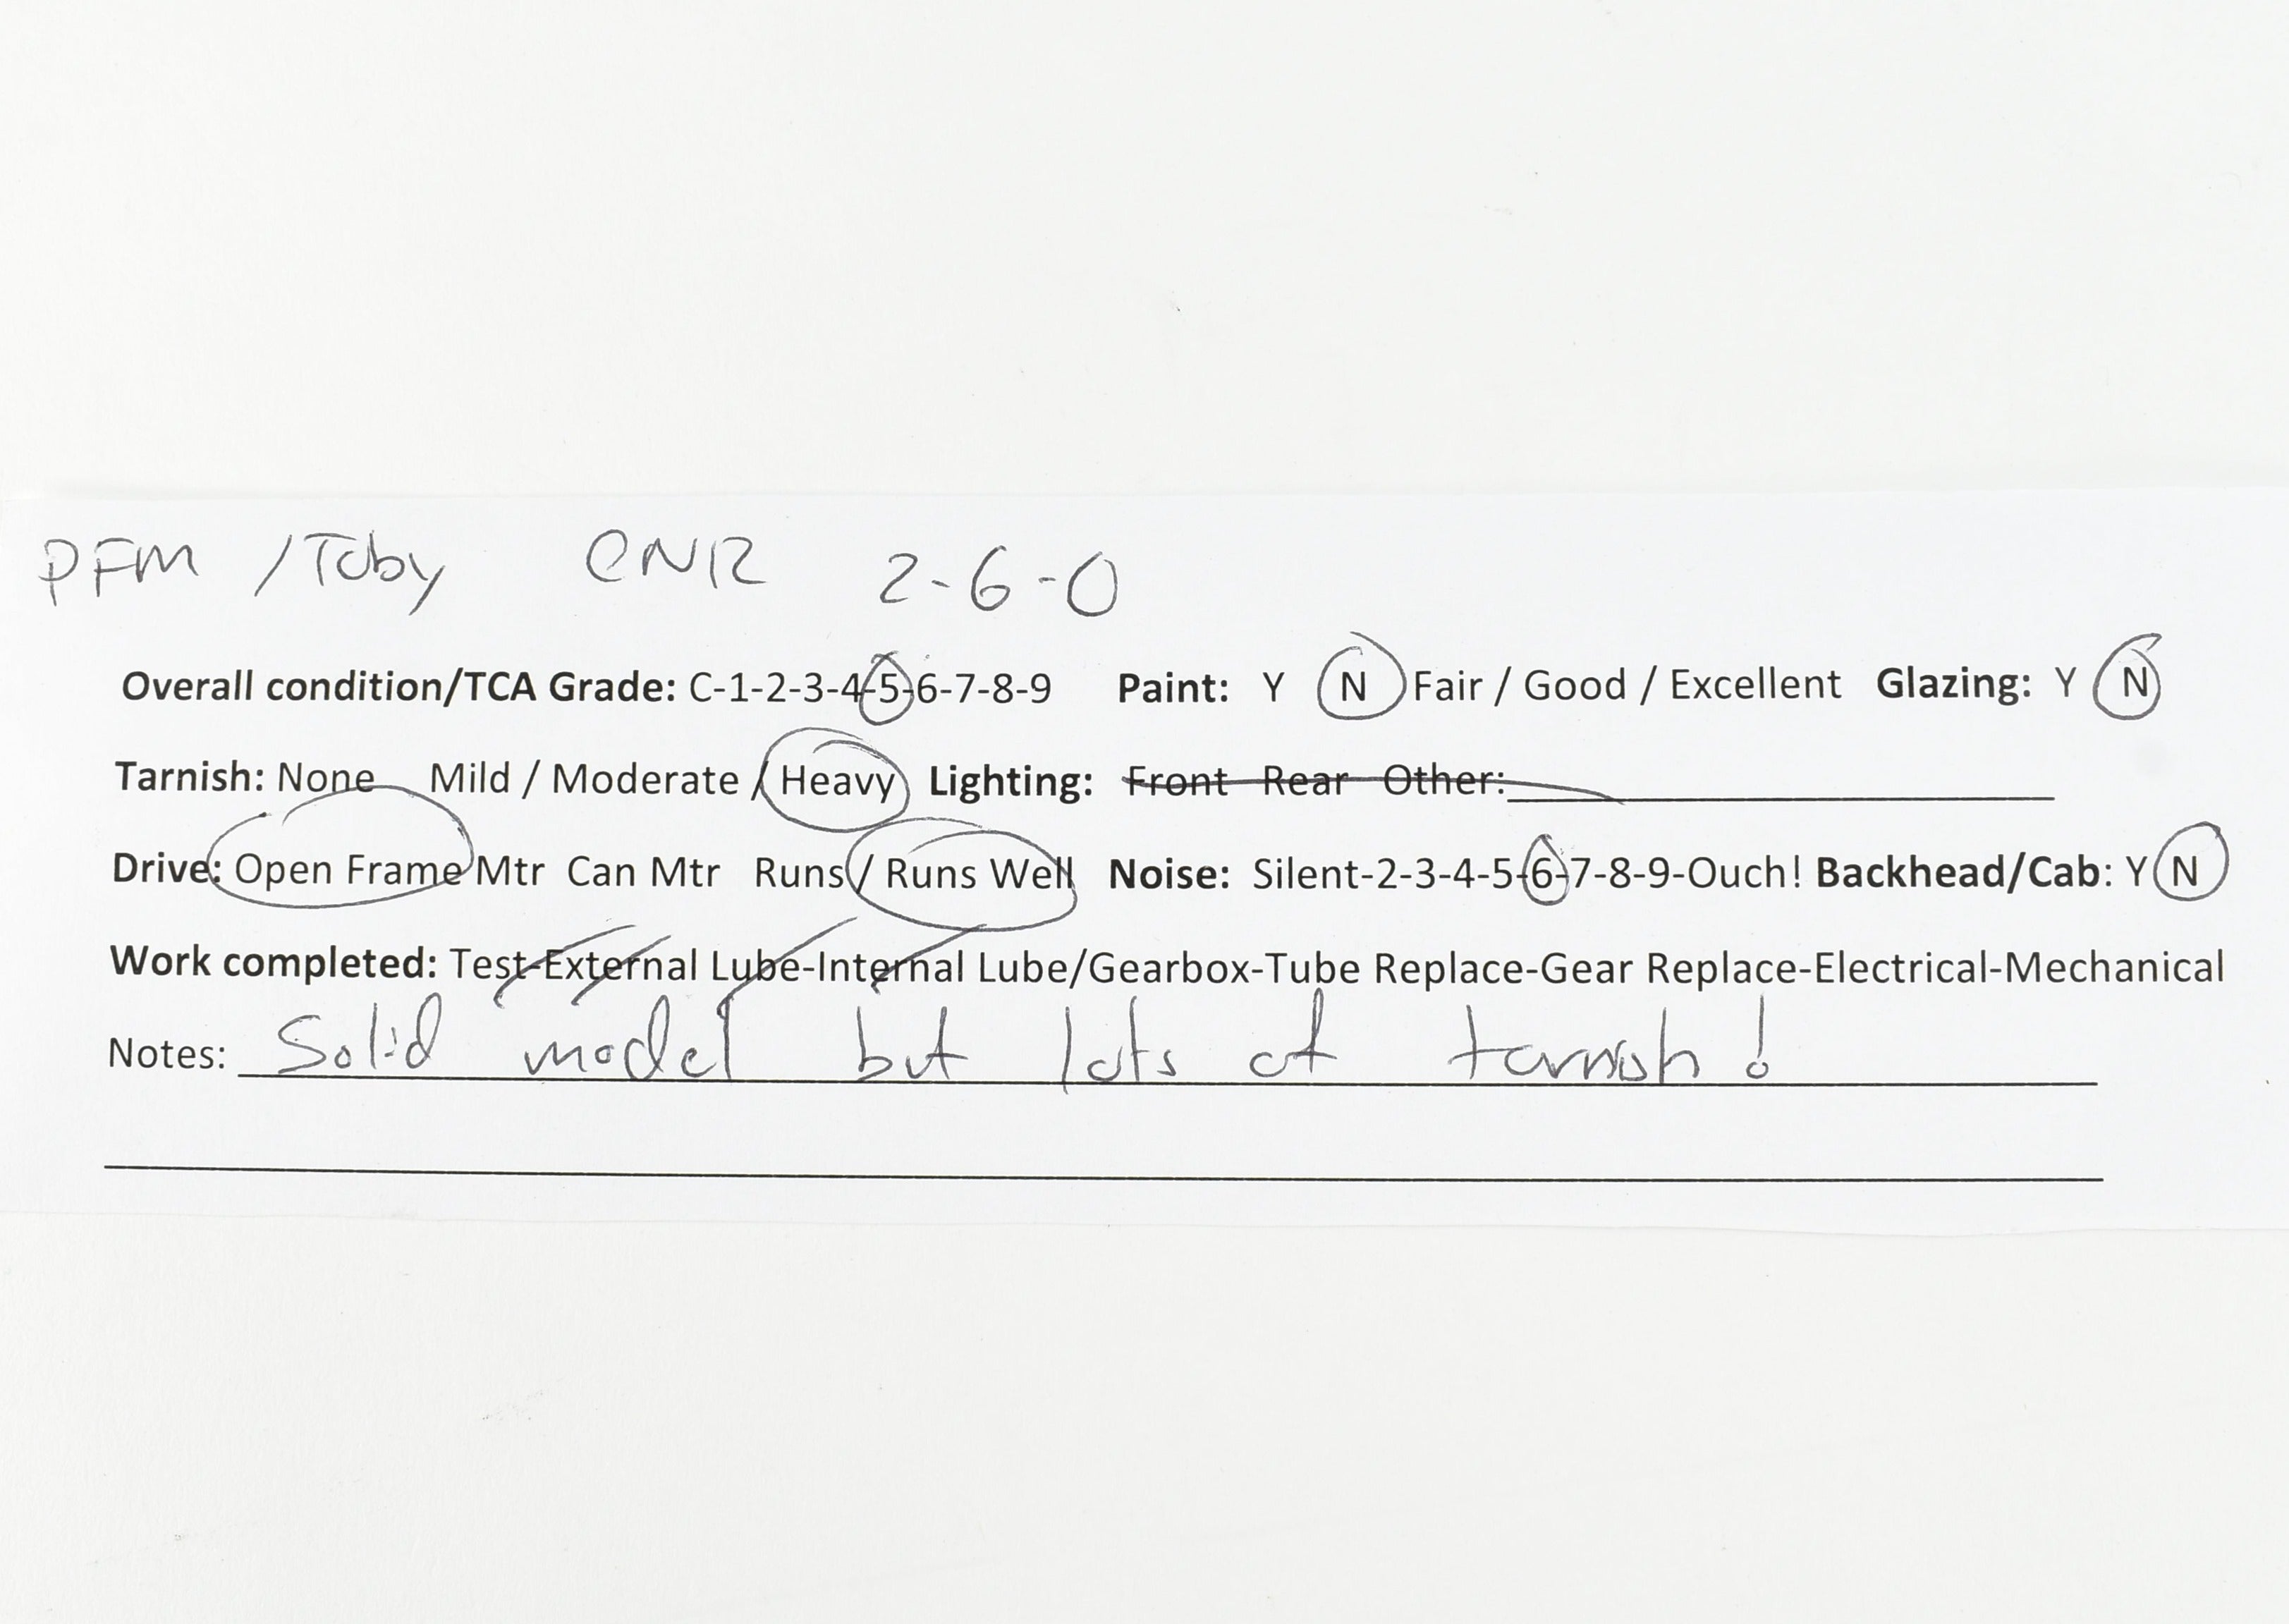 PFM /Toby CNR 2-6-0
Overall condition/TCA Grade: C-1-2-3-4-5-6-7-8-9 Paint: Y N Fair / Good / Excellent Glazing: Y N
Tarnish: None Mild / Moderate / Heavy Lighting: Front Rear Other:
Drive: Open Frame Mtr Can Mtr Runs / Runs Well Noise: Silent-2-3-4-5-6-7-8-9-Ouch! Backhead/Cab: Y N
Work completed: Test-External Lube-Internal Lube/Gearbox-Tube Replace-Gear Replace-Electrical-Mechanical
Notes: Solid model but lots of tarnish!